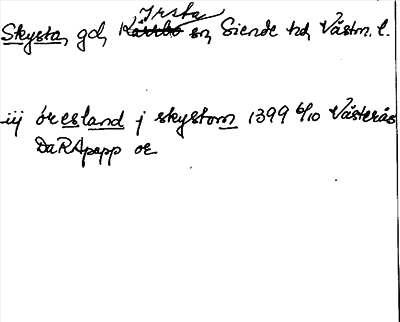 Irsta
Skysta, gd, Kärrbo sn, Siende hd, Västm. l.
iij öresland j skystom 1399 6/10 Västerås
DaRApapp or